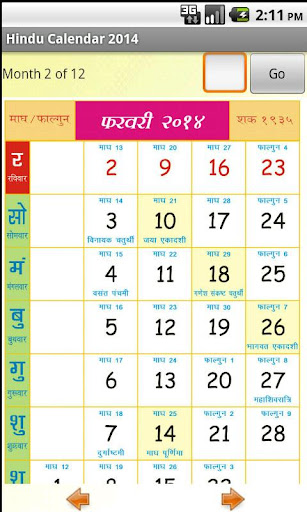 3G
2:11 PM
Hindu Calendar 2014
Month 2 of 12 Go
माघ / फाल्गुन फरवरी २०१४ शक १९३५
माघ 13 माघ 20 माघ 27 फाल्गुन 4
र 2 9 16 23
रविवार
माघ 14 माघ 21 माघ 28 फाल्गुन 5
सो 3 10 17 24
सोमवार विनायक चतुर्थी जया एकादशी
माघ 15 माघ 22 माघ 29 फाल्गुन 6
मं 4 11 18 25
मंगलवार वसंत पंचमी गणेश संकष्ट चतुर्थी
माघ 16 माघ 23 माघ 30 फाल्गुन 7
बु 5 12 19 26
बुधवार एकादशी
माघ 17 माघ 24 फाल्गुन 1 फाल्गुन 8
गु 6 13 20 27
गुरुवार महाशिवरात्रि
माघ 18 माघ 25 फाल्गुन 2 फाल्गुन 9
शु 7 14 21 28
शुक्रवार दुर्गाष्टमी माघ पूर्णिमा
माघ 12 माघ 19 माघ 26 फाल्गुन 3
श 1 8 15 22